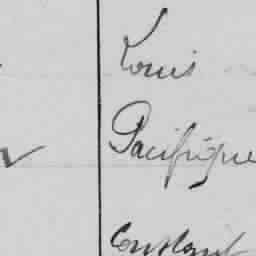 Louis
Pacifique
Constant